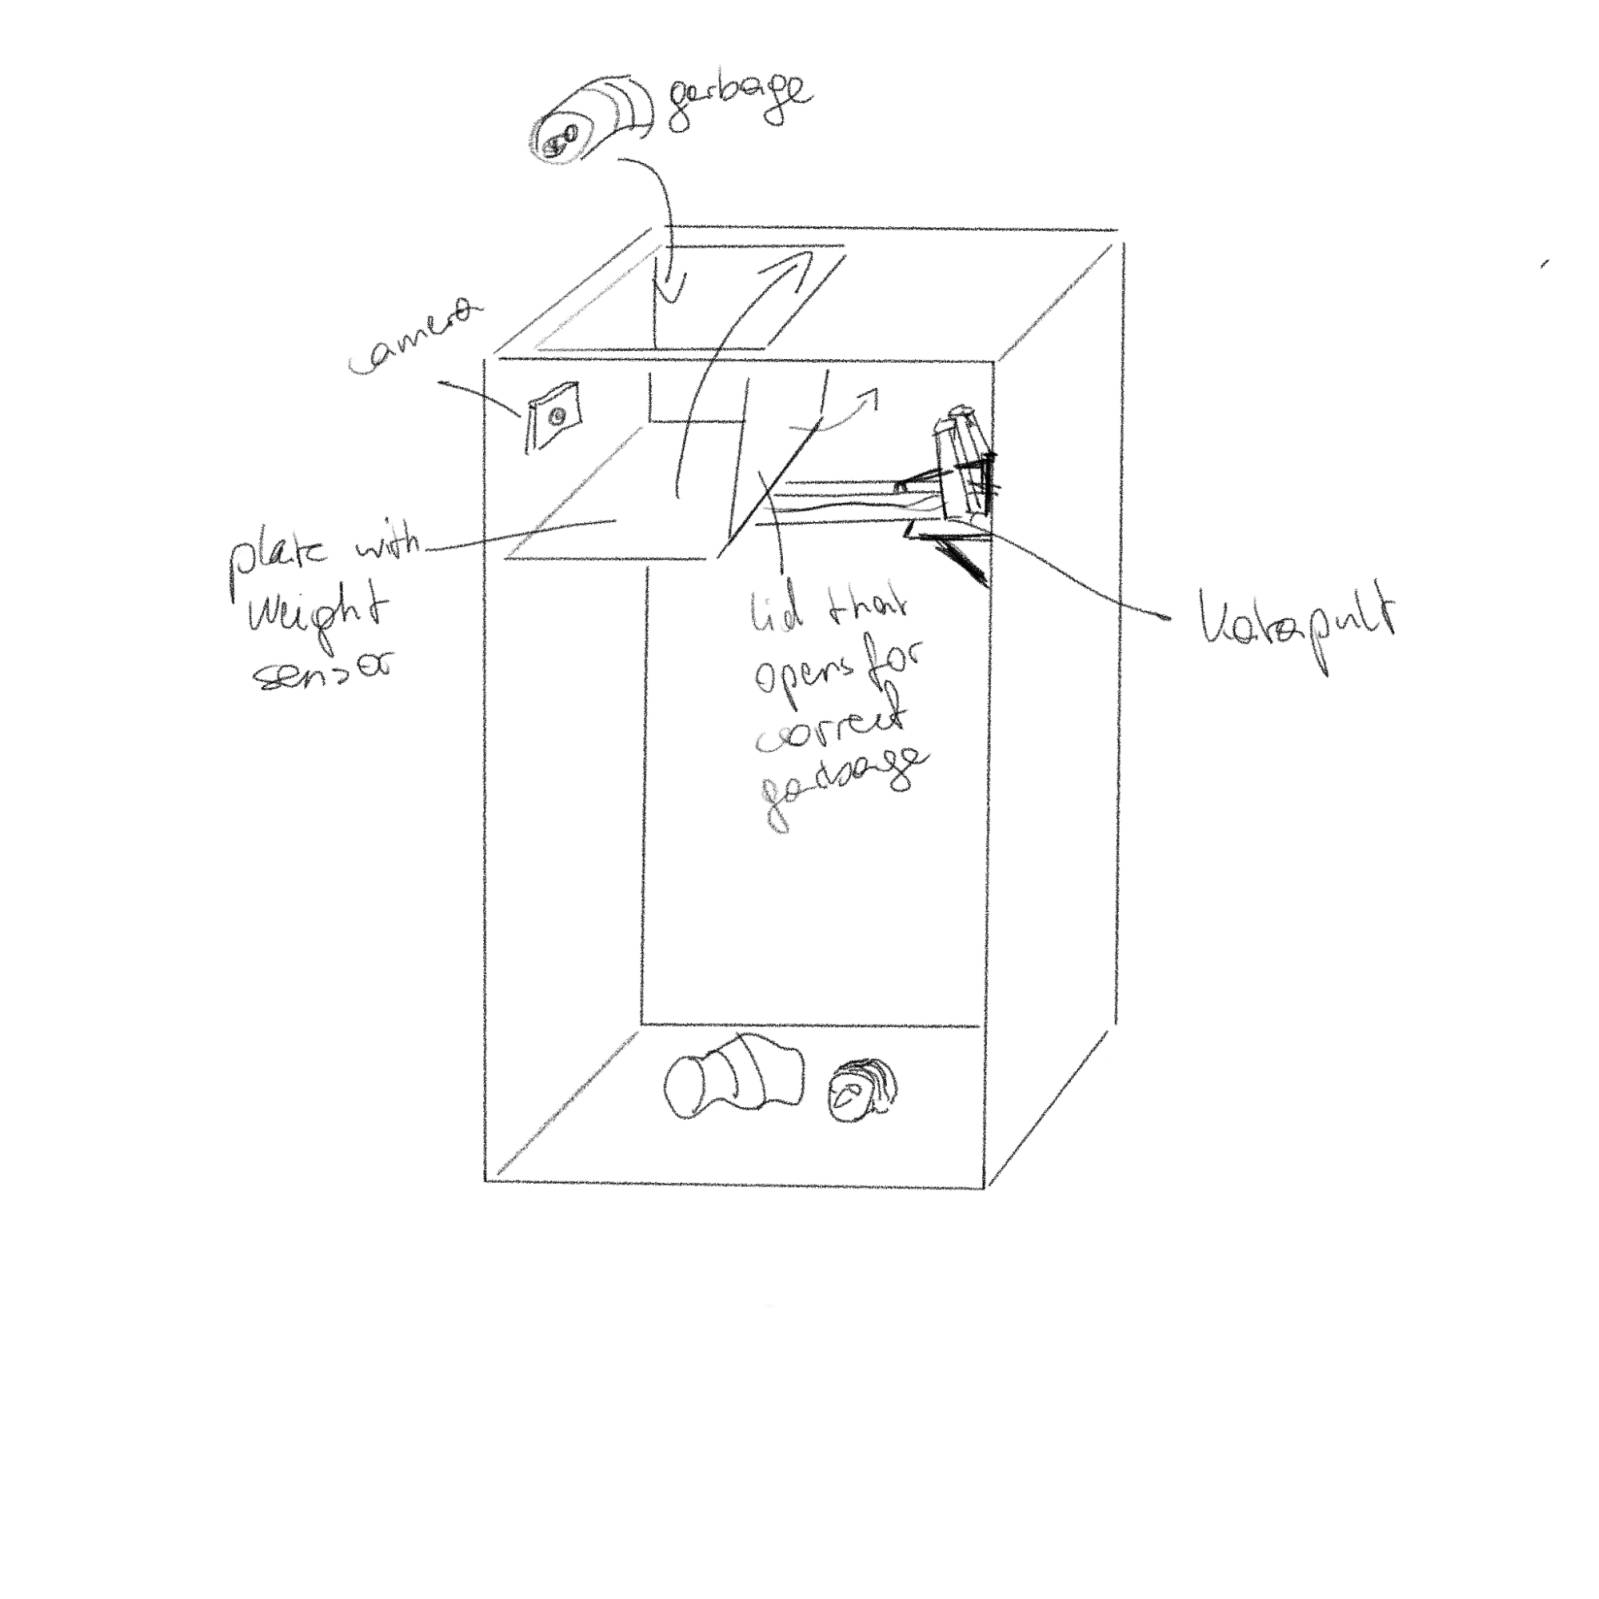 garbage
camera
plate with
weight
sensor
lid that
opens for
correct
garbage
Katapult